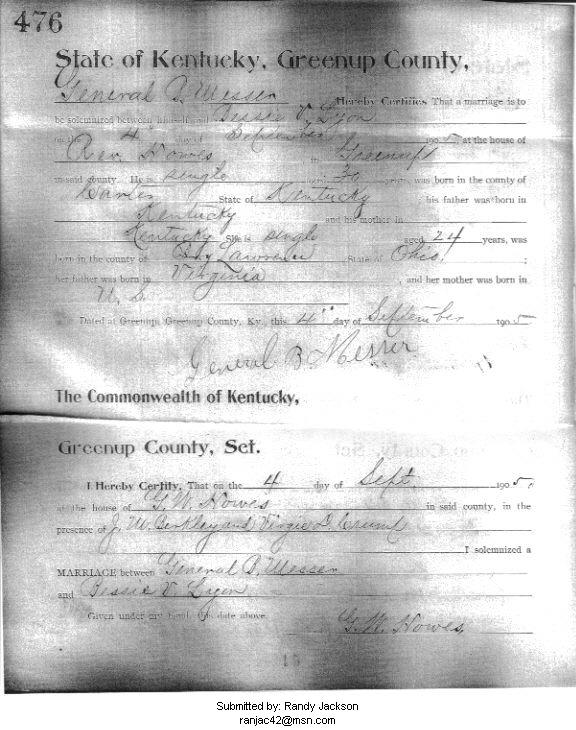 476
State of Kentucky, Greenup County,
General B. Messer Hereby Certifies That a marriage is to
be solemnized between himself and Bessie V. Lyon
on the 4" day of September 1905, at the house of
Rev. Howes in Greenup
in said county. He is single years, was born in the county of
State of Kentucky; his father was born in
Kentucky and his mother in
Kentucky She is single aged 24 years, was
born in the county of Lawrence State of Ohio;
her father was born in Virginia, and her mother was born in
Dated at Greenup, Greenup County, Ky., this 4" day of September 1905
General B Messer
The Commonwealth of Kentucky,
Greenup County, Sct.
I Hereby Certify, That on the 4 day of Sept. 1905.
at the house of G. W. Howes in said county, in the
presence of J. W. and Virgie
I solemnized a
MARRIAGE between General B. Messer
and Bessie V. Lyon
Given under my hand, this date above.
G. W. Howes,
Submitted by: Randy Jackson
ranjac42@msn.com